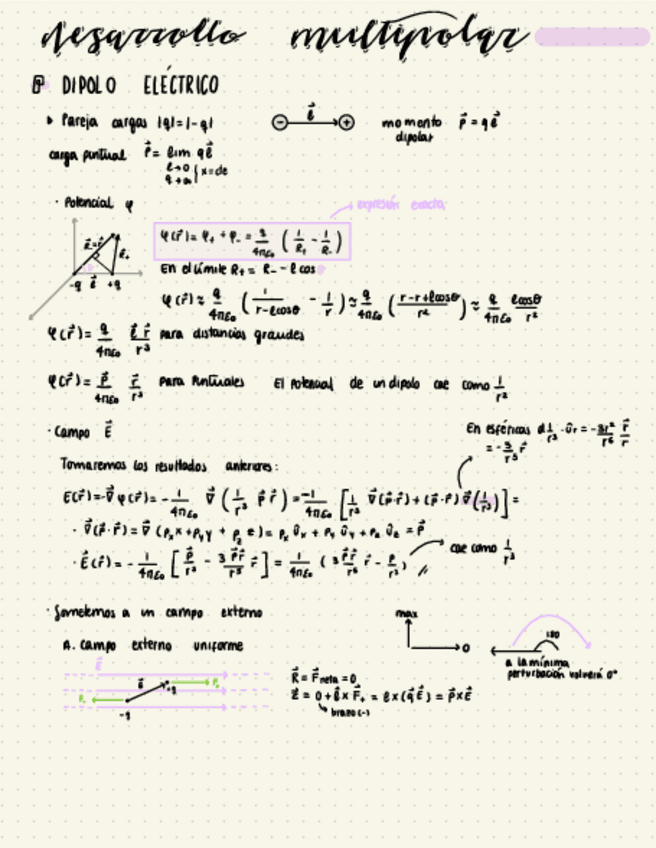 desarrollo multipolar
DIPOLO ELÉCTRICO
Pareja cargas |q|=|-q|
− ℓ⃗ +
momento p⃗ = qℓ⃗
dipolar
carga puntual p⃗ = lim qℓ⃗
ℓ→0
q→∞
· Potencial φ
expresión exacta
φ(r⃗) = φ₊ + φ₋ = q/4πε₀ (1/R₊ − 1/R₋)
R₊
-q ℓ⃗ +q
En el límite R₊ = R₋ − ℓ cos
φ(r⃗) ≈ q/4πε₀ (1/r−ℓcosθ − 1/r) ≈ q/4πε₀ (r−r+ℓcosθ/r²) ≈ q/4πε₀ ℓcosθ/r²
φ(r⃗) = q/4πε₀ ℓ⃗ r⃗/r³ para distancias grandes
φ(r⃗) = p⃗/4πε₀ r⃗/r³ para puntuales El potencial de un dipolo cae como 1/r²
· Campo E⃗
En esféricas d 1/r³ · ûr = −3r²/r⁶ r⃗/r
= −3/r⁵ r⃗
Tomaremos los resultados anteriores:
E(r⃗) = −∇⃗ φ(r⃗) = −1/4πε₀ ∇⃗ (1/r³ p⃗ r⃗) = −1/4πε₀ [1/r³ ∇⃗(p⃗·r⃗) + (p⃗·r⃗) ∇⃗(1/r³)] =
· ∇⃗(p⃗·r⃗) = ∇⃗ (pₓx + p_y y + p_z z) = pₓ ûₓ + p_y û_y + p_z û_z = p⃗
· E⃗(r⃗) = −1/4πε₀ [p⃗/r³ − 3 p⃗r⃗/r⁵ r⃗] = 1/4πε₀ (3 p⃗r⃗/r⁵ r⃗ − p/r³)
cae como 1/r³
· Sometemos a un campo externo
A. Campo externo uniforme
max
0
180
a la mínima
perturbación volverá 0°
E⃗
ℓ⃗
+q
F₊
F₋
-q
R⃗ = F⃗neta = 0
τ⃗ = 0 + ℓ⃗ × F₊ = ℓ × (qE⃗) = p⃗ × E⃗
brazo (-)